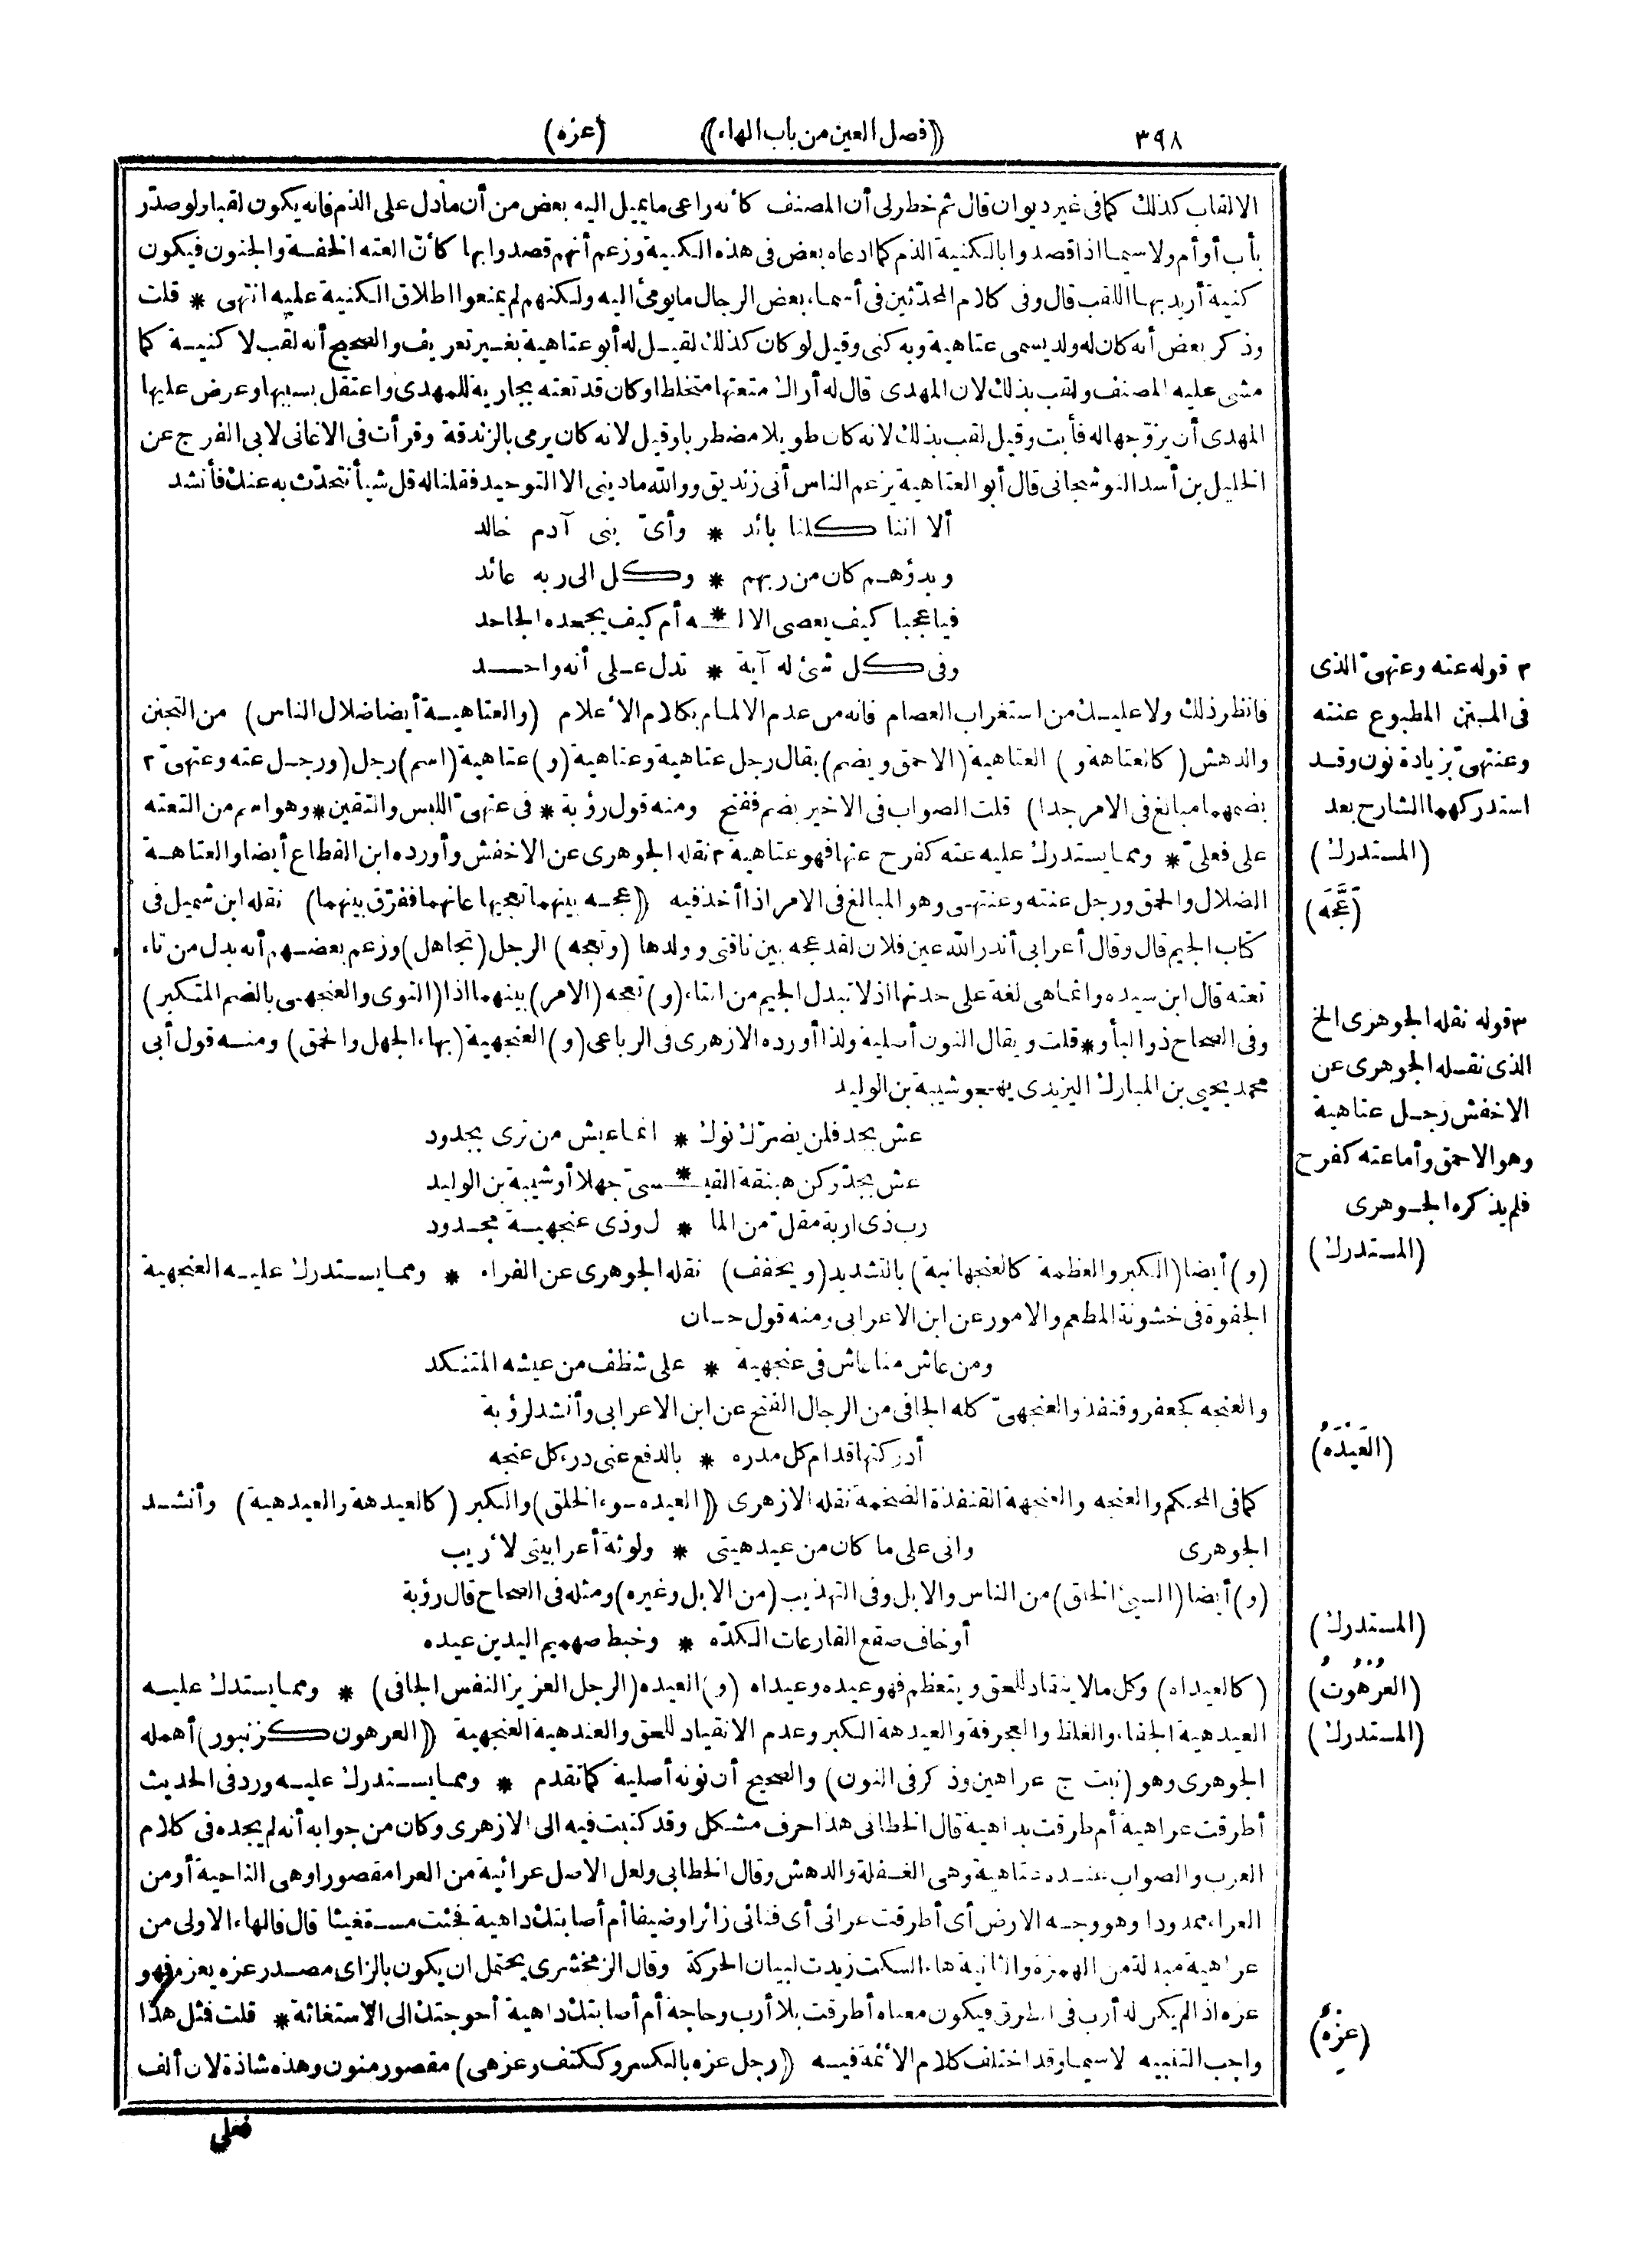 ٣٩٨
((فصل العين من باب الهاء))
(عزه)
الالقاب كذلك كما فى غير ديوان قال ثم خطر لى أن المصنف كأنه راعى ما يميل اليه بعض من أن ما دل على الذم فانه يكون لقبا ولو صدّر
بأب أو أم ولاسيما اذا قصدوا بالكنية الذم كما ادعاه بعض فى هذه الكنية وزعم أنهم قصدوا بها كأنّ العته الخفة والجنون فيكون
كنية أريد بها اللقب قال وفى كلام المحدّثين فى أسماء بعض الرجال ما يومئ اليه ولكنهم لم يمنعوا اطلاق الكنية عليه انتهى * قلت
وذكر بعض أنه كان له ولد يسمى عتاهية وبه كنى وقيل لو كان كذلك لقيل له أبو عتاهية بغير تعريف والصحيح أنه لقب لا كنية كما
مشى عليه المصنف ولقب بذلك لان المهدى قال له أراك متعتها متخلطا وكان قد تعته بجارية للمهدى واعتقل بسببها وعرض عليها
المهدى أن يزوّجها له فأبت وقيل لقب بذلك لانه كان طويلا مضطربا وقيل لانه كان يرمى بالزندقة وقرأت فى الاغانى لابى الفرج عن
الخليل بن أسد النوشجانى قال أبو العتاهية يزعم الناس أنى زنديق ووالله ما دينى الا التوحيد فقلنا له قل شيأ نتحدّث به عنك فأنشد
ألا اننا كلنا بائد * وأىّ بنى آدم خالد
وبدؤهم كان من ربهم * وكل الى ربه عائد
فيا عجبا كيف يعصى الال * ه أم كيف يجحده الجاحد
وفى كل شئ له آية * تدل على أنه واحد
فانظر ذلك ولا عليك من استغراب العصام فانه من عدم الالمام بكلام الأعلام (والعتاهية أيضا ضلال الناس) من التجنن
والدهش (كالعتاهة و) العتاهية (الاحمق ويضم) يقال رجل عتاهية وعتاهية (و) عتاهية (اسم) رجل (ورجل عته وعتهىّ ٢
بضمهما مبالغ فى الامر جدا) قلت الصواب فى الاخير بضم ففتح ومنه قول رؤبة * فى عتهىّ اللبس والتقين * وهو اسم من التعته
على فعلىّ * ومما يستدرك عليه عته كفرح عتها فهو عتاهية ٣ نقله الجوهرى عن الاخفش وأورده ابن القطاع أيضا والعتاهة
الضلال والحمق ورجل عنته وعنتهى وهو المبالغ فى الامر اذا أخذ فيه ((عجه بينهما تعجيها عانهما ففرّق بينهما) نقله ابن شميل فى
كتاب الجيم قال وقال أعرابى أندر الله عين فلان لقد عجه بين ناقتى وولدها (وتعجه) الرجل (تجاهل) وزعم بعضهم أنه بدل من تاء
تعته قال ابن سيده وانما هى لغة على حدتها اذ لا تبدل الجيم من التاء (و) تعجه (الامر) بينهما اذا (التوى والعنجهى بالضم المتكبر)
وفى الصحاح ذو البأو * قلت ويقال النون أصلية ولذا أورده الازهرى فى الرباعى (و) العنجهية (بهاء الجهل والحمق) ومنه قول أبى
محمد يحيى بن المبارك اليزيدى يهجو شيبة بن الوليد
عش بجد فلن يضرّك نوك * انما عيش من ترى بجدود
عش بجدّ وكن هبنقة القي * سىّ جهلا أو شيبة بن الوليد
رب ذى اربة مقلّ من الما * ل وذى عنجهية مجدود
(و) أيضا (الكبر والعظمة كالعنجهانية) بالتشديد (ويخفف) نقله الجوهرى عن الفراء * ومما يستدرك عليه العنجهية
الجفوة فى خشونة المطعم والامور عن ابن الاعرابى ومنه قول حسان
ومن عاش منا عاش فى عنجهية * على شظف من عيشه المتنكد
والعنجه كجعفر وقنفذ والعنجهىّ كله الجافى من الرجال الفتح عن ابن الاعرابى وأنشد لرؤبة
أدركتها قدام كل مدره * بالدفع عنى درء كل عنجه
كما فى المحكم والعنجه والعنجهة القنفذة الضخمة نقله الازهرى ((العيده سوء الخلق) والكبر (كالعيدهة والعيدهية) وأنشد
الجوهرى وانى على ما كان من عيدهيتى * ولوثة أعرابيتى لأريب
(و) أيضا (السيئ الخلق) من الناس والابل وفى التهذيب (من الابل وغيره) ومثله فى الصحاح قال رؤبة
أو خاف صقع القارعات الكدّه * وخبط صهميم اليدين عيده
(كالعيداه) وكل ما لا ينقاد للحق ويتعظم فهو عيده وعيداه (و) العيده (الرجل العزيز النفس الجافى) * ومما يستدك عليه
العيدهية الجفاء والغلظ والعجرفة والعيدهة الكبر وعدم الانقياد للحق والعندهية العنجهية ((العرهون كزنبور) أهمله
الجوهرى وهو (نبت ج عراهين وذكر فى النون) والصحيح أن نونه أصلية كما تقدم * ومما يستدرك عليه ورد فى الحديث
أطرقت عراهية أم طرقت بداهية قال الخطابى هذا حرف مشكل وقد كتبت فيه الى الازهرى وكان من جوابه أنه لم يجده فى كلام
العرب والصواب عنده عتاهية وهى الغفلة والدهش وقال الخطابى ولعل الاصل عرائية من العرا مقصورا وهى الناحية أو من
العراء ممدودا وهو وجه الارض أى أطرقت عرائى أى فنائى زائرا وضيفا أم أصابتك داهية فجئت مستغيثا قال فالهاء الاولى من
عراهية مبدلة من الهمزة والثانية هاء السكت زيدت لبيان الحركة وقال الزمخشرى يحتمل ان يكون بالزاى مصدر عزه يعزه فهو
عزه اذا لم يكن له أرب فى الطرق فيكون معناه أطرقت بلا أرب وحاجة أم أصابتك داهية أحوجتك الى الاستغاثة * قلت فمثل هذا
واجب التنبيه لاسيما وقد اختلف كلام الأئمة فيه ((رجل عزه بالكسر وككتف وعزهى) مقصور منون وهذه شاذة لان ألف
فعلى
٢ قوله عته وعتهىّ الذى
فى المتن المطبوع عنته
وعنتهىّ بزيادة نون وقد
استدركهما الشارح بعد
(المستدرك)
(عَجَّهَ)
٣ قوله نقله الجوهرى الخ
الذى نقله الجوهرى عن
الاخفش رجل عتاهية
وهو الاحمق وأما عته كفرح
فلم يذكره الجوهرى
(المستدرك)
(العَيْدَهُ)
(المستدرك)
(العُرْهُونُ)
(المستدرك)
(عِزْهٌ)